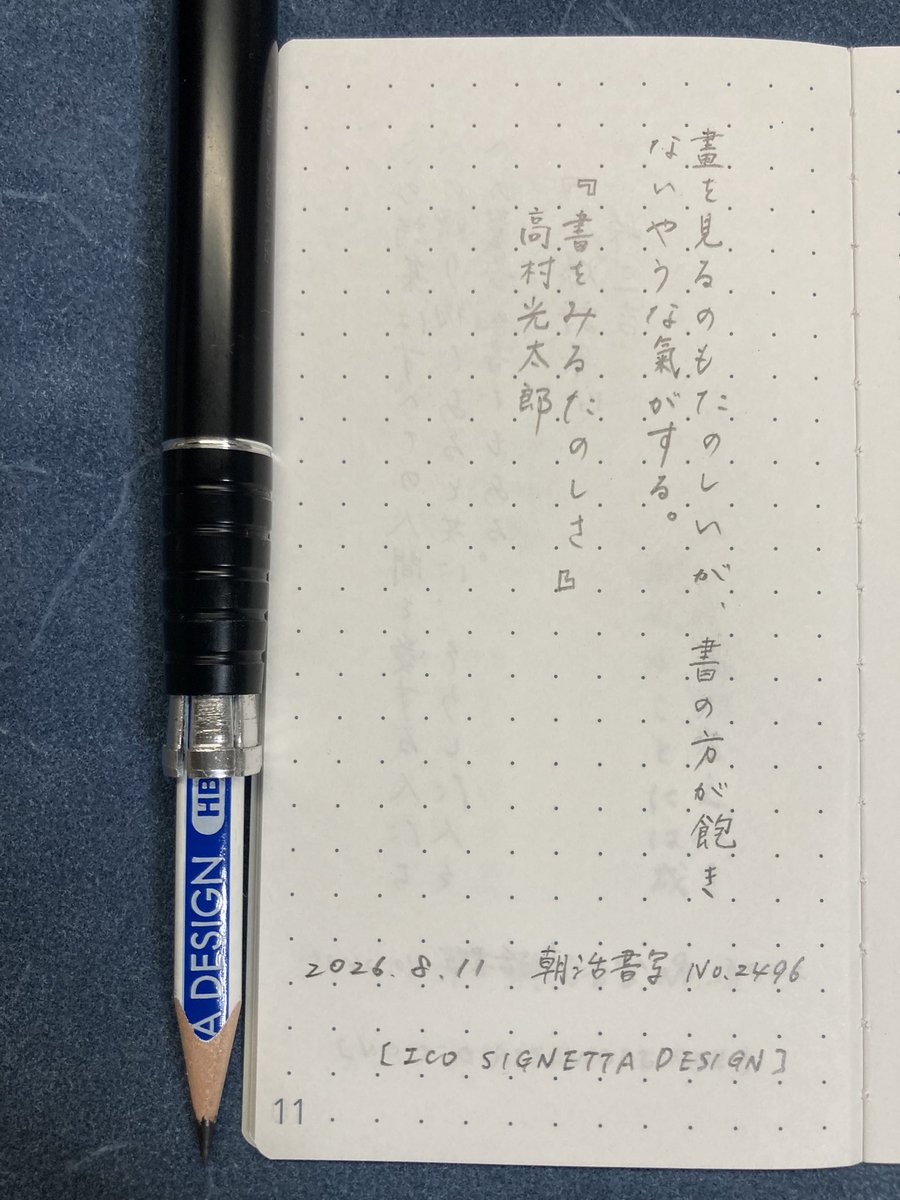 畫を見るのもたのしいが、書の方が飽き
ないやうな氣がする。
『書をみるたのしさ』
高村光太郎
2026.8.11 朝活書写 No.2496
[ICO SIGNETTA DESIGN]
11
A DESIGN HB